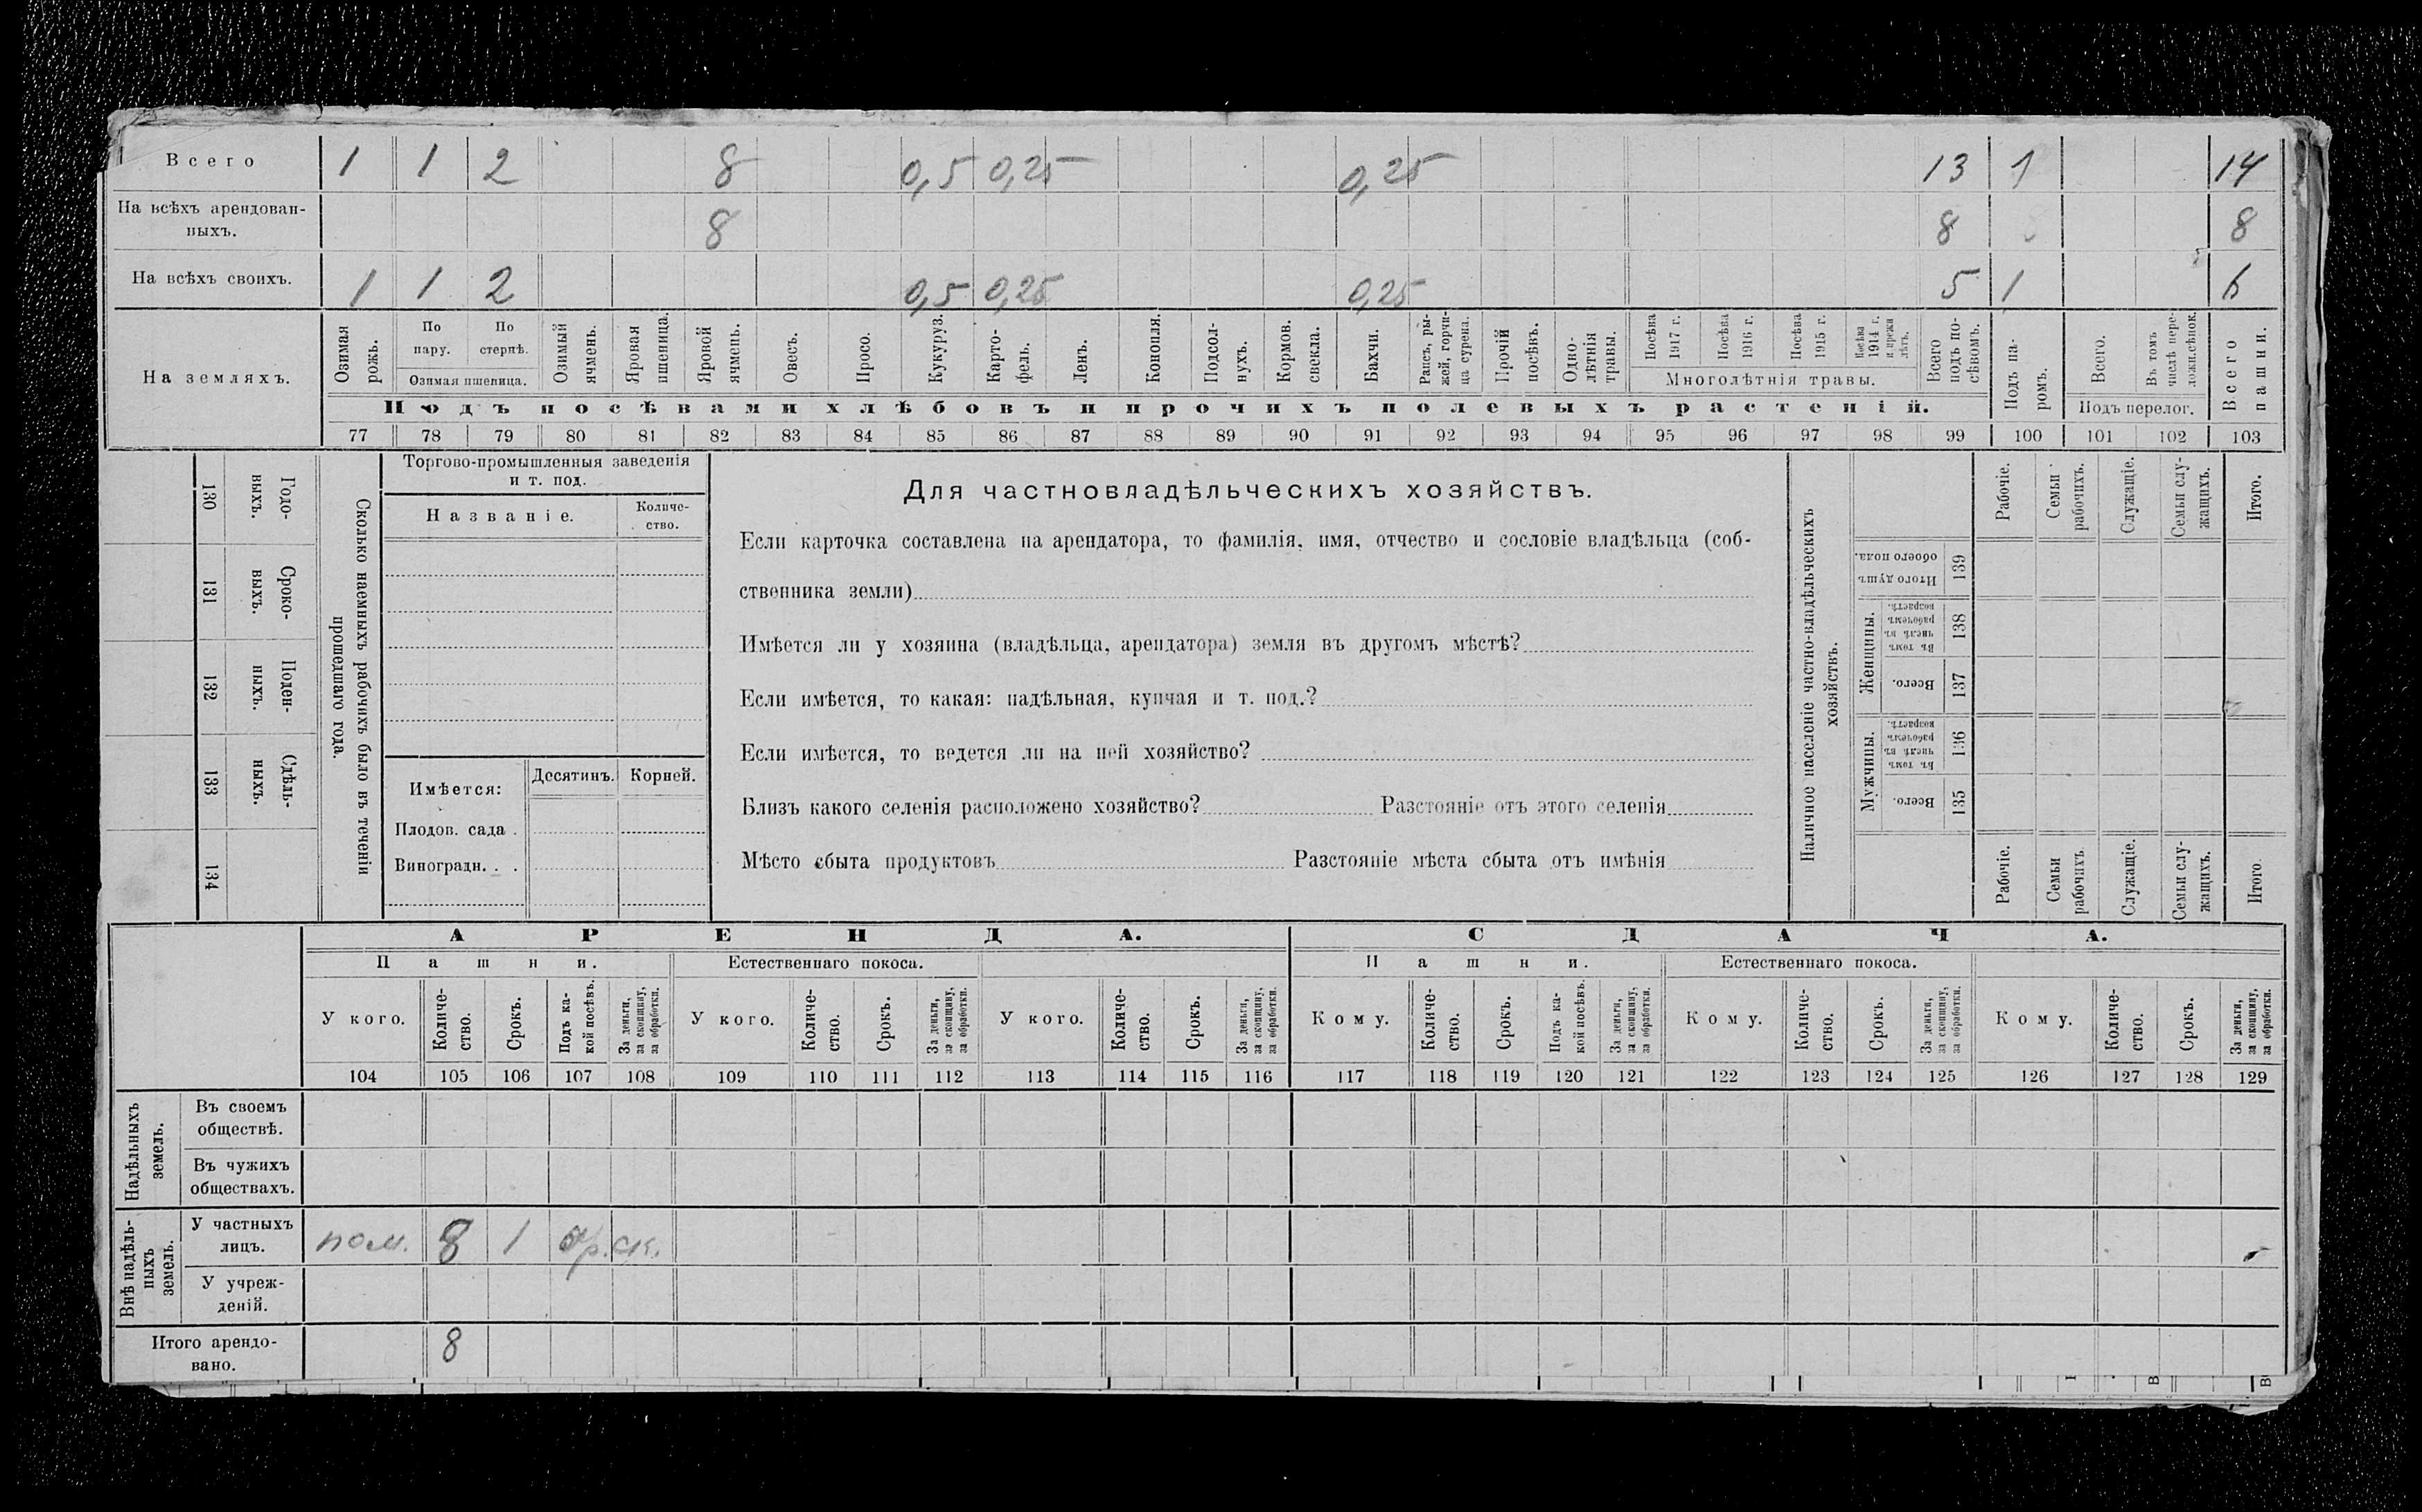 Всего 1 1 2 8 0,5 0,25 0,25 13 1 14
На всѣхъ арендован-
ныхъ. 8 8 8
На всѣхъ своихъ. 1 1 2 0,5 0,25 0,25 5 1 6
На земляхъ.
Озимая рожь.
По пару.
По стернѣ.
Озимая пшеница.
Озимый ячмень.
Яровая пшеница.
Яровой ячмень.
Овесъ.
Просо.
Кукуруз.
Карто-
фель.
Ленъ.
Конопля.
Подсол-
нухъ.
Кормов. свекла.
Бахчи.
Рапсъ, ры-
жей, горчи-
ца сурепа.
Прочій посѣвъ.
Одно-
лѣтнія травы.
Посѣва 1917 г.
Посѣва 1916 г.
Посѣва 1915 г.
Посѣва 1914 г. и прежн. лѣтъ.
Многолѣтнія травы.
Всего подъ по-
сѣвомъ.
Подъ па-
ромъ.
Всего.
Въ томъ числѣ пере-
ложн.сѣнок.
Подъ перелог.
Всего пашни.
Подъ посѣвами хлѣбовъ и прочихъ полевыхъ растеній.
77 78 79 80 81 82 83 84 85 86 87 88 89 90 91 92 93 94 95 96 97 98 99 100 101 102 103
130 Годо-
выхъ.
131 Сроко-
выхъ.
132 Поден-
ныхъ.
133 Сдѣль-
ныхъ.
134
Сколько наемныхъ рабочихъ было въ теченіи
прошедшаго года.
Торгово-промышленныя заведенія
и т. под.
Названіе. Количе-
ство.
Имѣется: Десятинъ. Корней.
Плодов. сада .
Виноградн. . .
Для частновладѣльческихъ хозяйствъ.
Если карточка составлена на арендатора, то фамилія, имя, отчество и сословіе владѣльца (соб-
ственника земли)
Имѣется ли у хозяина (владѣльца, арендатора) земля въ другомъ мѣстѣ?
Если имѣется, то какая: надѣльная, купчая и т. под.?
Если имѣется, то ведется ли на ней хозяйство?
Близъ какого селенія расположено хозяйство? Разстояніе отъ этого селенія
Мѣсто сбыта продуктовъ Разстояніе мѣста сбыта отъ имѣнія
Наличное населеніе частно-владѣльческихъ
хозяйствъ.
Рабочіе. Семьи рабочихъ. Служащіе. Семьи слу-
жащихъ. Итого.
Итого душъ обоего пола. 139
Женщины.
Въ томъ числѣ въ рабочемъ возрастѣ. 138
Всего. 137
Мужчины.
Въ томъ числѣ въ рабочемъ возрастѣ. 136
Всего. 135
Рабочіе. Семьи рабочихъ. Служащіе. Семьи слу-
жащихъ. Итого
АРЕНДА. СДАЧА.
Пашни. Естественнаго покоса. Пашни. Естественнаго покоса.
У кого. Количе-
ство. Срокъ. Подъ ка-
кой посѣвъ. За деньги, за скопщину, за обработки.
У кого. Количе-
ство. Срокъ. За деньги, за скопщину, за обработки.
У кого. Количе-
ство. Срокъ. За деньги, за скопщину, за обработки.
Кому. Количе-
ство. Срокъ. Подъ ка-
кой посѣвъ. За деньги, за скопщину, за обработки.
Кому. Количе-
ство. Срокъ. За деньги, за скопщину, за обработки.
Кому. Количе-
ство. Срокъ. За деньги, за скопщину, за обработки.
104 105 106 107 108 109 110 111 112 113 114 115 116 117 118 119 120 121 122 123 124 125 126 127 128 129
Надѣльныхъ земель.
Въ своемъ
обществѣ.
Въ чужихъ
обществахъ.
Внѣ надѣль-
ныхъ земель.
У частныхъ
лицъ. пом. 8 1 ск.
У учреж-
деній.
Итого арендо-
вано. 8